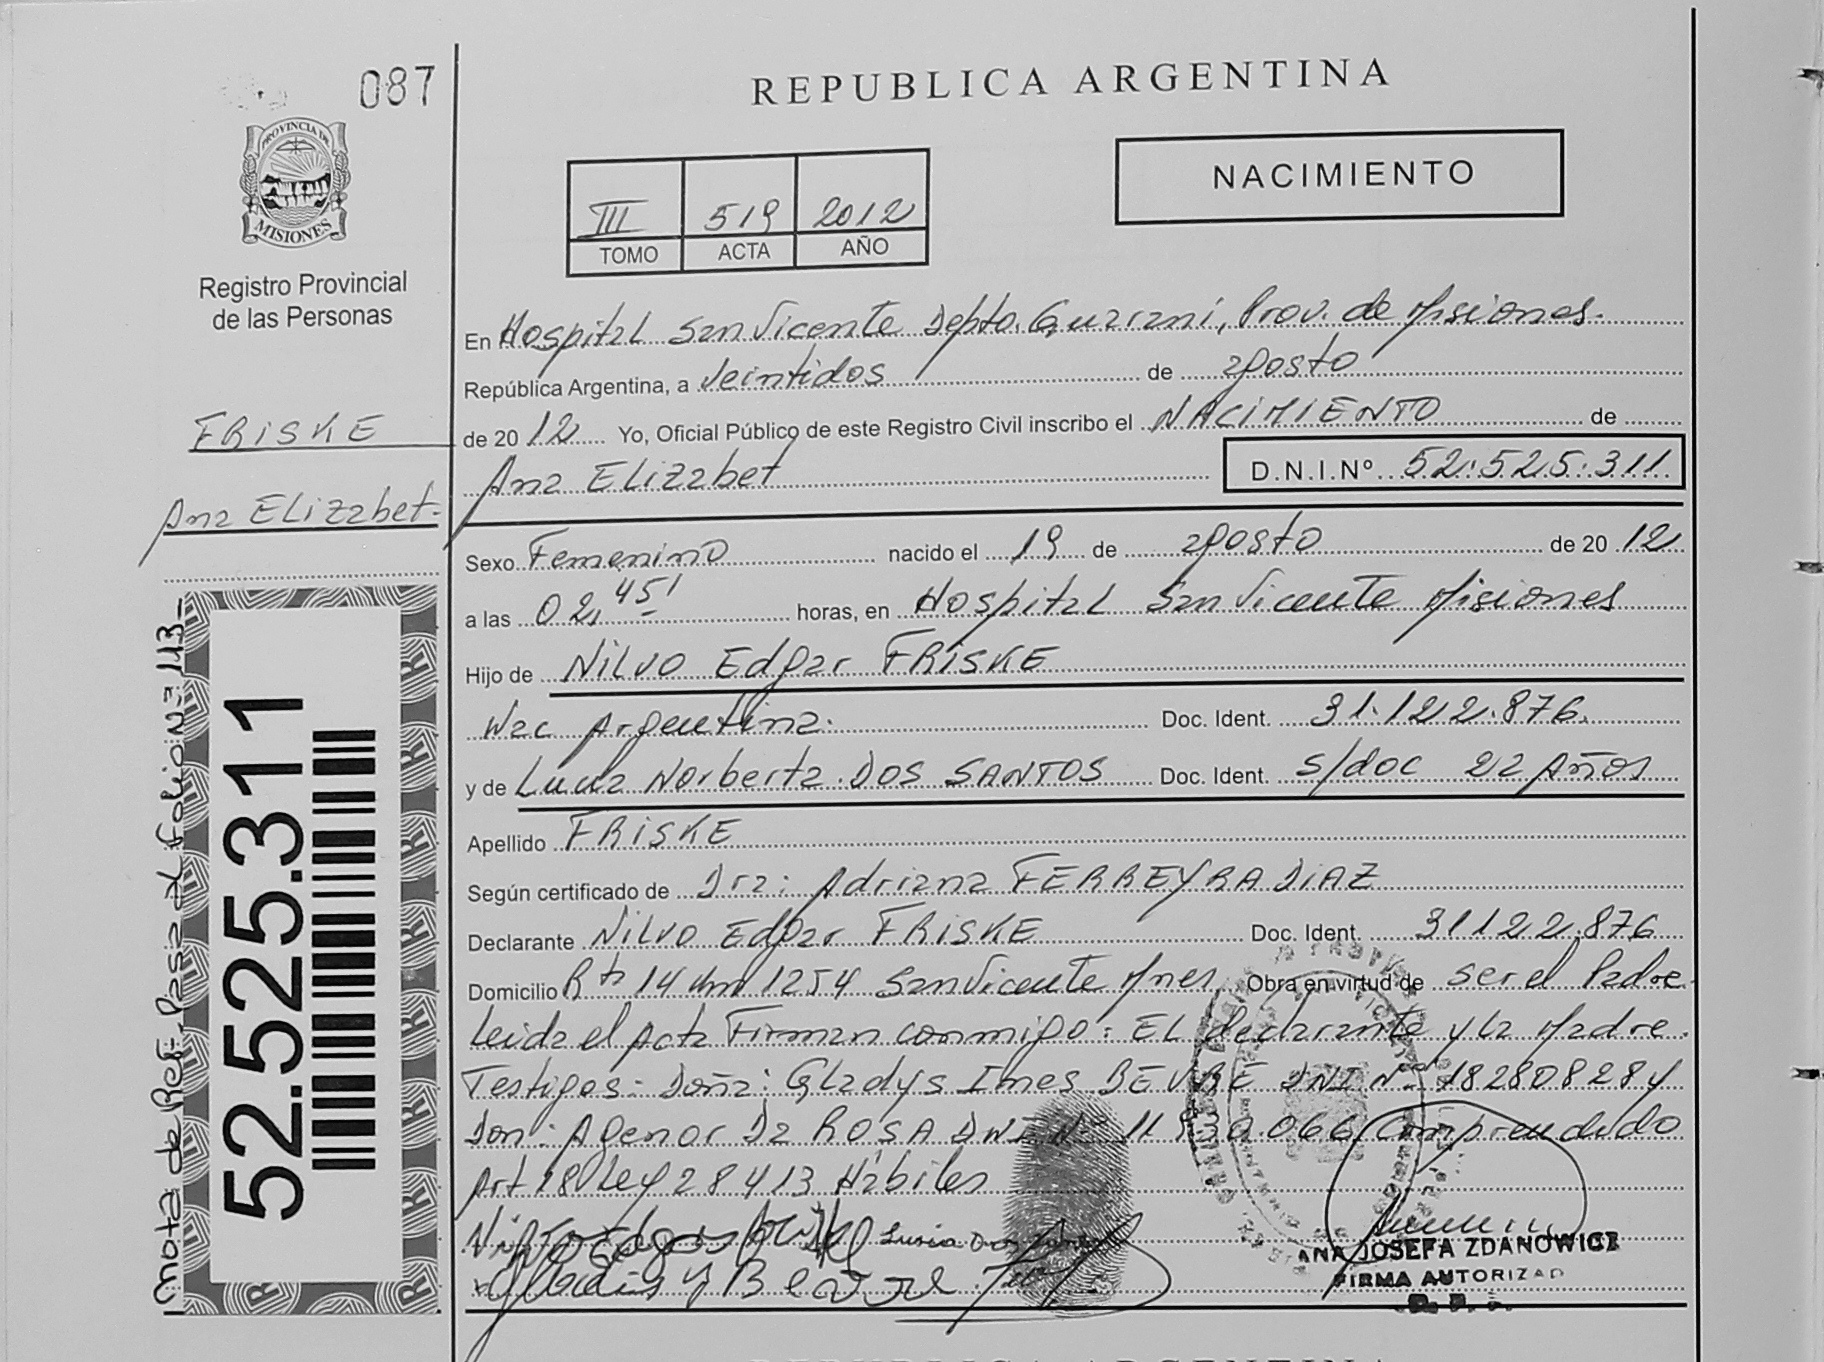 087
REPUBLICA ARGENTINA
PROVINCIA DE
MISIONES
Registro Provincial
de las Personas
NACIMIENTO
III 519 2012
TOMO ACTA AÑO
FRISKE
Ana ELizabet.
En Hospital San Vicente Depto. Guarani, Prov. de Misiones.
República Argentina, a veintidos de agosto
de 20 12 Yo, Oficial Público de este Registro Civil inscribo el NACIMIENTO de
Ana ELizabet D.N.I.Nº 52.525.311
Sexo Femenino nacido el 19 de agosto de 20 12
a las 02,45' horas, en Hospital San Vicente Misiones
Hijo de Nilvo Edgar FRISKE
Nac Argentina. Doc. Ident. 31.122.876.
y de Norberta DOS SANTOS Doc. Ident. S/doc 22 Años
Apellido FRISKE
Según certificado de Dra: Adriana FERREYRA DIAZ
Declarante Nilvo Edgar FRISKE Doc. Ident. 31122.876
Domicilio Rta 14 Km 1254 San Vicente Mnes. Obra en virtud de ser el Padre.
Leida el Acta Firman conmigo: EL declarante y la Madre.
Testigos: Doña: Gladys Ines DNI Nº 18280828 y
Don: Agenor Da ROSA DNI Nº 066 Comprendido
Art 18 Ley 28413 Hábiles
ANA JOSEFA ZDANOWICZ
FIRMA AUTORIZAD
52.525.311
nota de Ref. Pasa al Folio Nº 113
REPUBLICA ARGENTINA